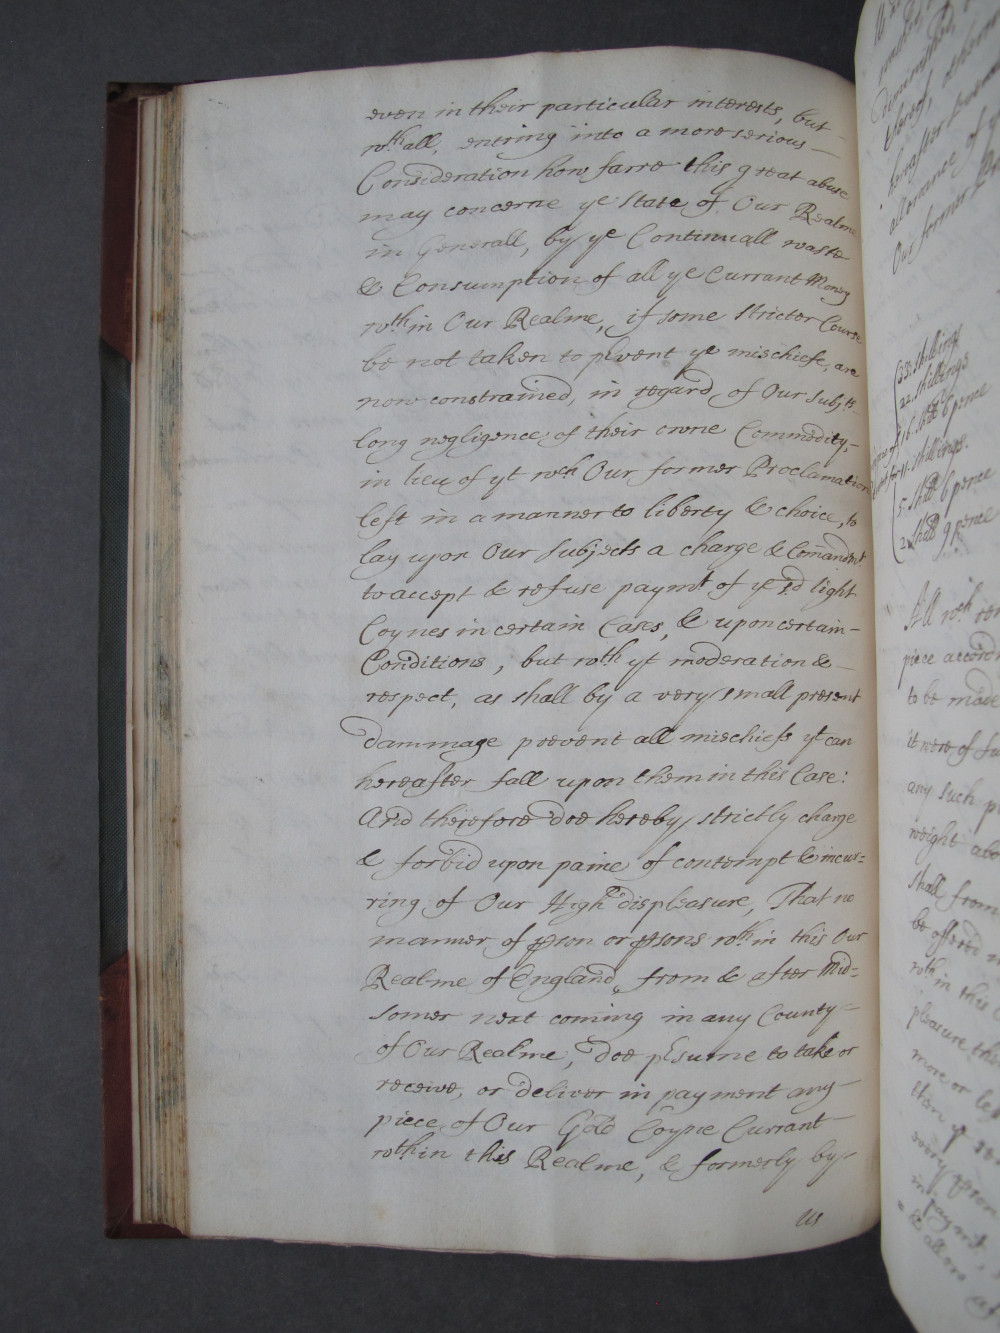 even in their particular interests, but
wth all, entring into a more serious
Consideration how farre this great abuse
may concerne ye State of Our Realme
in Generall, by ye Continuall waste
& Consumption of all ye Currant Money
wth in Our Realme, if some stricter Course
be not taken to pvent ye mischiefe, are
now constrained, in regard of Our Subjts
long negligence of their owne Commodity,
in lieu of yt wch Our former Proclamation
left in a manner to liberty & choice, to
lay upon Our Subjects a charge & Comandmt
to accept & refuse paymt of ye sd light
Coynes in certain Cases, & upon certain
Conditions, but wth yt moderation &
respect, as shall by a very small present
dammage prevent all mischiefs yt can
hereafter fall upon them in this Case:
And therefore doe hereby strictly charge
& forbid upon paine of contempt & incur=
ring of Our High displeasure, That no
manner of pson or psons wth in this Our
Realme of England, from & after Mid=
somer next coming in any County
of Our Realme, doe psume to take or
receive, or deliver in payment any
piece of Our Gold Coyne Currant
wth in this Realme, & formerly by
us
hereafter
allowance of
Our former
33. shillings
22. shillings
16. shill 6 pence
11. shillings.
5. shill 6 pence
2. shill 9 pence
All wch
piece accord
to be made
it were of
any such p
weight abo
shall from
be offered
wth in this
pleasure
more or les
then ye
every pson
in paymt,
& allow